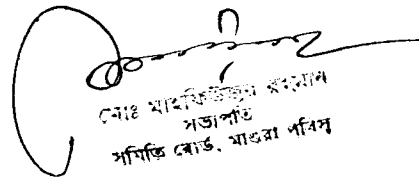 মোঃ মাহফিউজুর রহমান
সভাপতি
সমিতি বোর্ড, মাগুরা পবিস